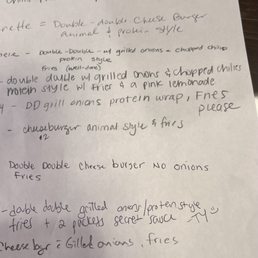 = Double-double Cheese Burger
Animal + protein style
- Double-Double w/ grilled onions + chopped chilis
protein style
fries (well-done)
- double double w/ grilled onions & chopped chilies
protein style w/ fries & a pink lemonade
- DD grill onions protein wrap, Fries
please
- cheeseburger animal style & fries
x2
Double Double cheese burger NO onions
Fries
- double double grilled onions/protein style
fries + 2 packets secret sauce TY
Cheese bgr c Grilled onions, fries